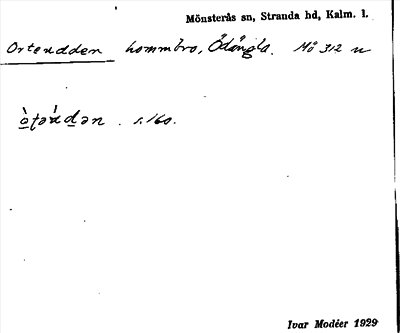 Mönsterås sn, Stranda hd, Kalm. l.
Ortendden hommöro, Ödängla. Må 312 u
s. 160.
Ivar Modéer 1929